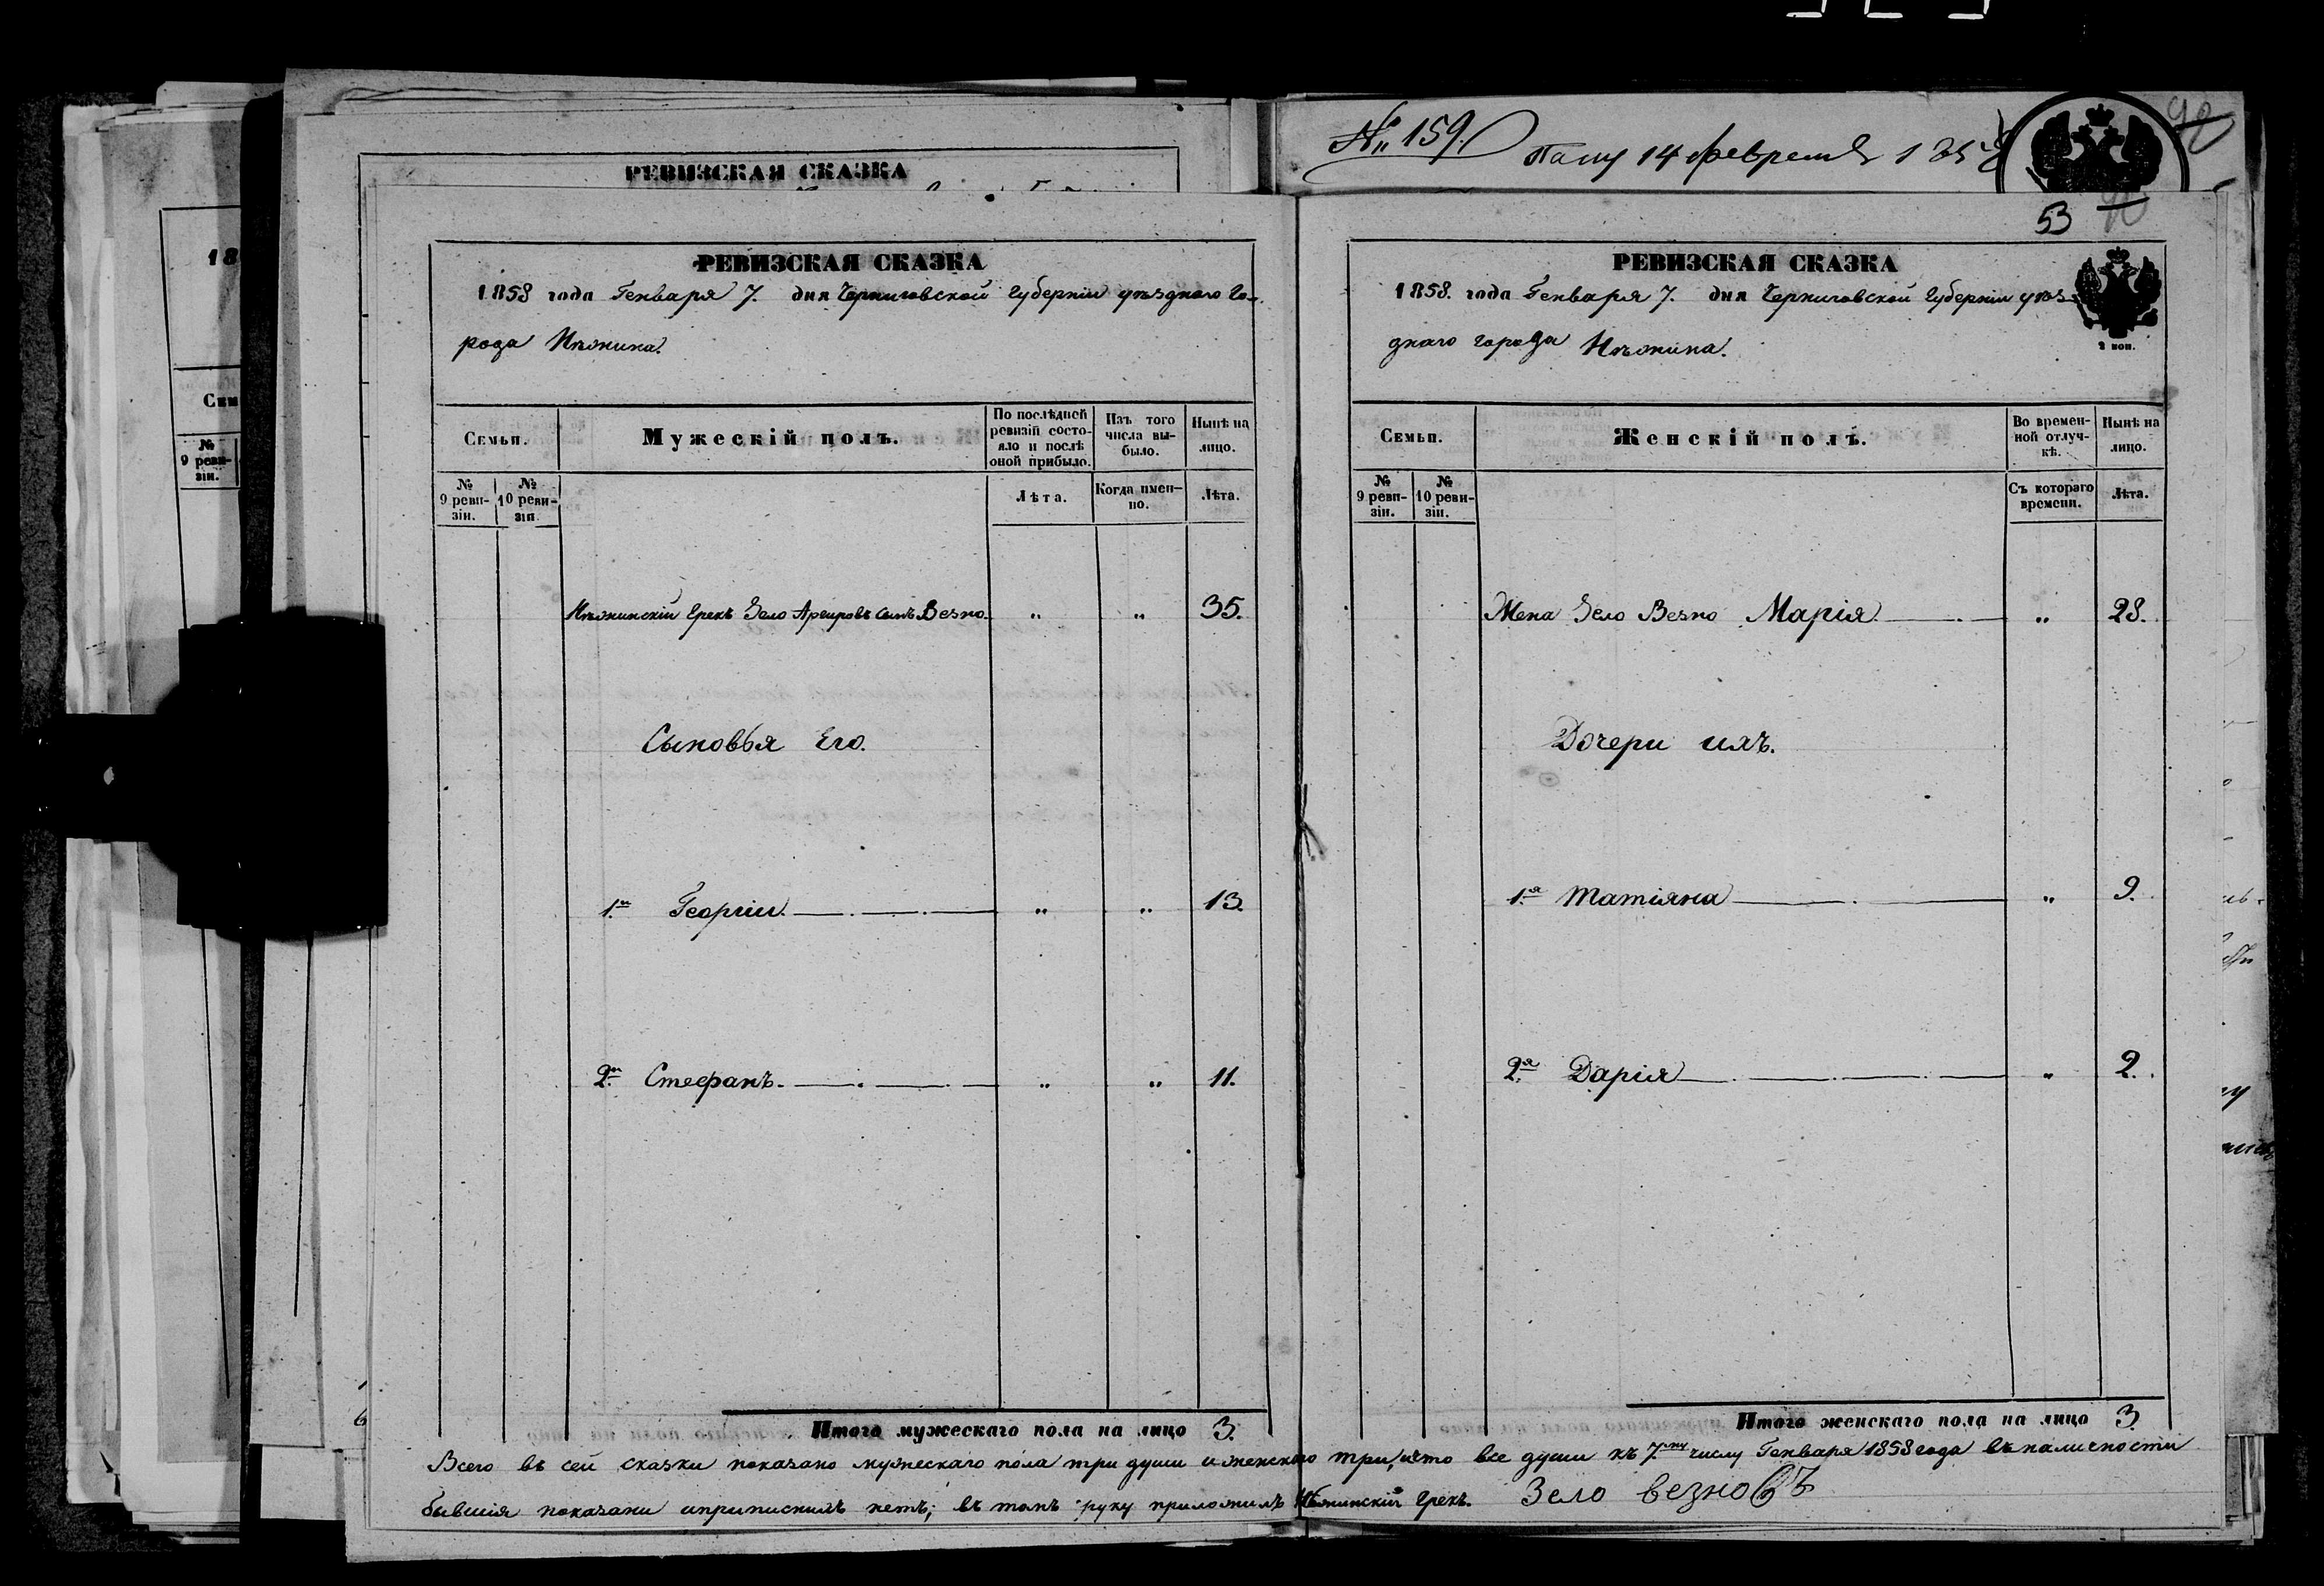 РЕВИЗСКАЯ СКАЗКА
№ 159. 14 февраля 1858
53
18
Сем
№
9 реви-
зіи.
РЕВИЗСКАЯ СКАЗКА
1858 года Генваря 7. дня Черниговской Губерніи уѣзднаго Го-
рода Нѣжина.
Семьи.
Мужескій полъ.
По послѣдней ревизіи состо-яло и послѣ оной прибыло.
Изъ того числа вы-было.
Нынѣ на лицо.
№ 9 реви-зіи.
№ 10 реви-зіи.
Лѣта.
Когда имен-но.
Лѣта.
Нѣжинскій Грекъ Зело Арсировъ сынъ Везно. „ „ 35.
Сыновья Его.
1.й Георгій. „ „ 13.
2.й Стефанъ. „ „ 11.
Итого мужескаго пола на лицо 3.
РЕВИЗСКАЯ СКАЗКА
1858. года Генваря 7. дня Черниговской Губерніи уѣз-
днаго города Нѣжина.
2 коп.
Семьи.
Женскій полъ.
Во времен-ной отлуч-кѣ.
Нынѣ на лицо.
№ 9 реви-зіи.
№ 10 реви-зіи.
Съ котораго времени.
Лѣта.
Жена Зело Везно Марія. „ 28.
Дочери ихъ.
1.я Татіяна „ 9.
2.я Дарія „ 2.
Итого женскаго пола на лицо 3.
Всего въ сей сказки показано мужескаго пола три души и женскаго три, и что все души къ 7му числу Генваря 1858 года въ наличности
бывшія показани и приписнихъ нетъ; въ томъ руку приложилъ Нѣжинскій Грекъ. Зело везновъ